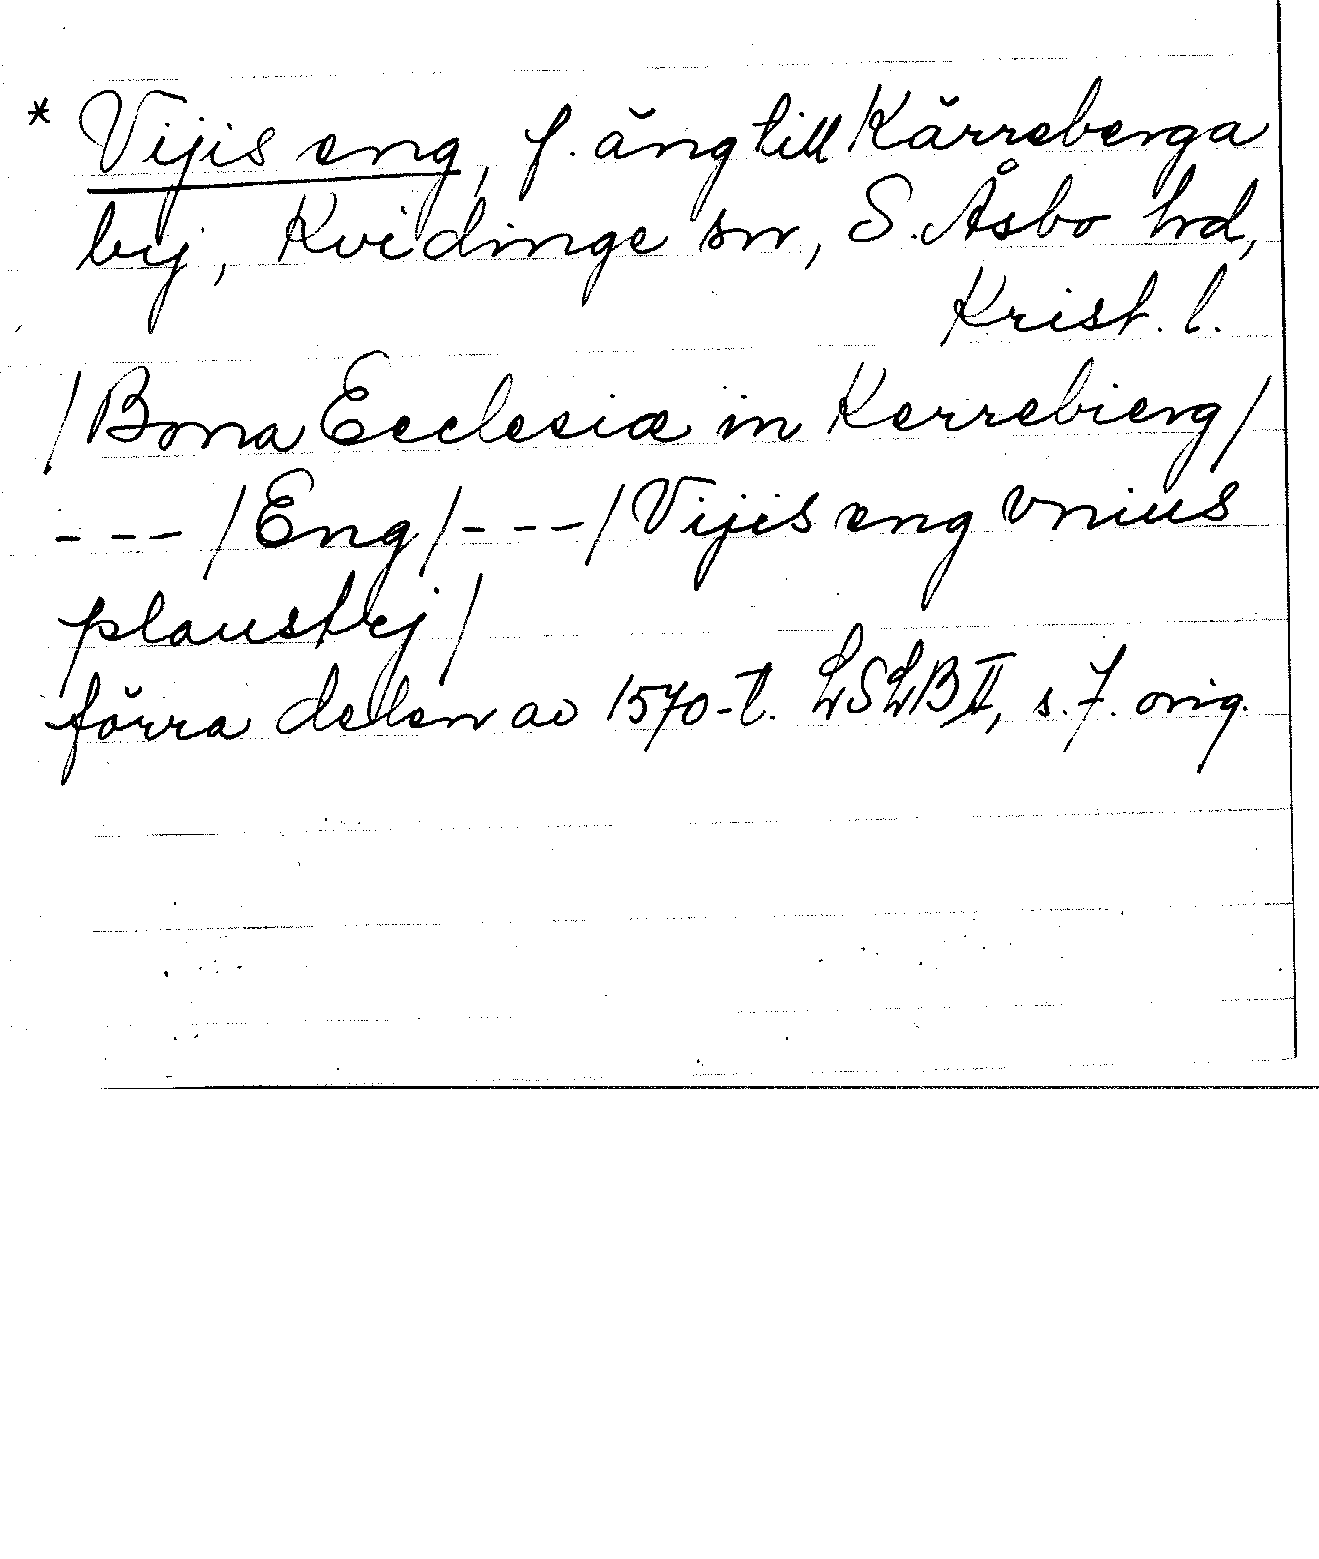 * Vijis eng, f. äng till Kärreberga
by, Kvidinge sn, S. Åsbo hd,
Krist. l.
/Bona Ecclesiæ in Kerrebierg/
--- /Eng/ --- /Vijis eng vnius
plaustrj/
förra delen av 1570-t. LSLB II, s. 7. orig.